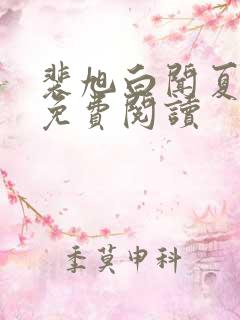 裴旭白聞夏
免費閱讀
季莫申科